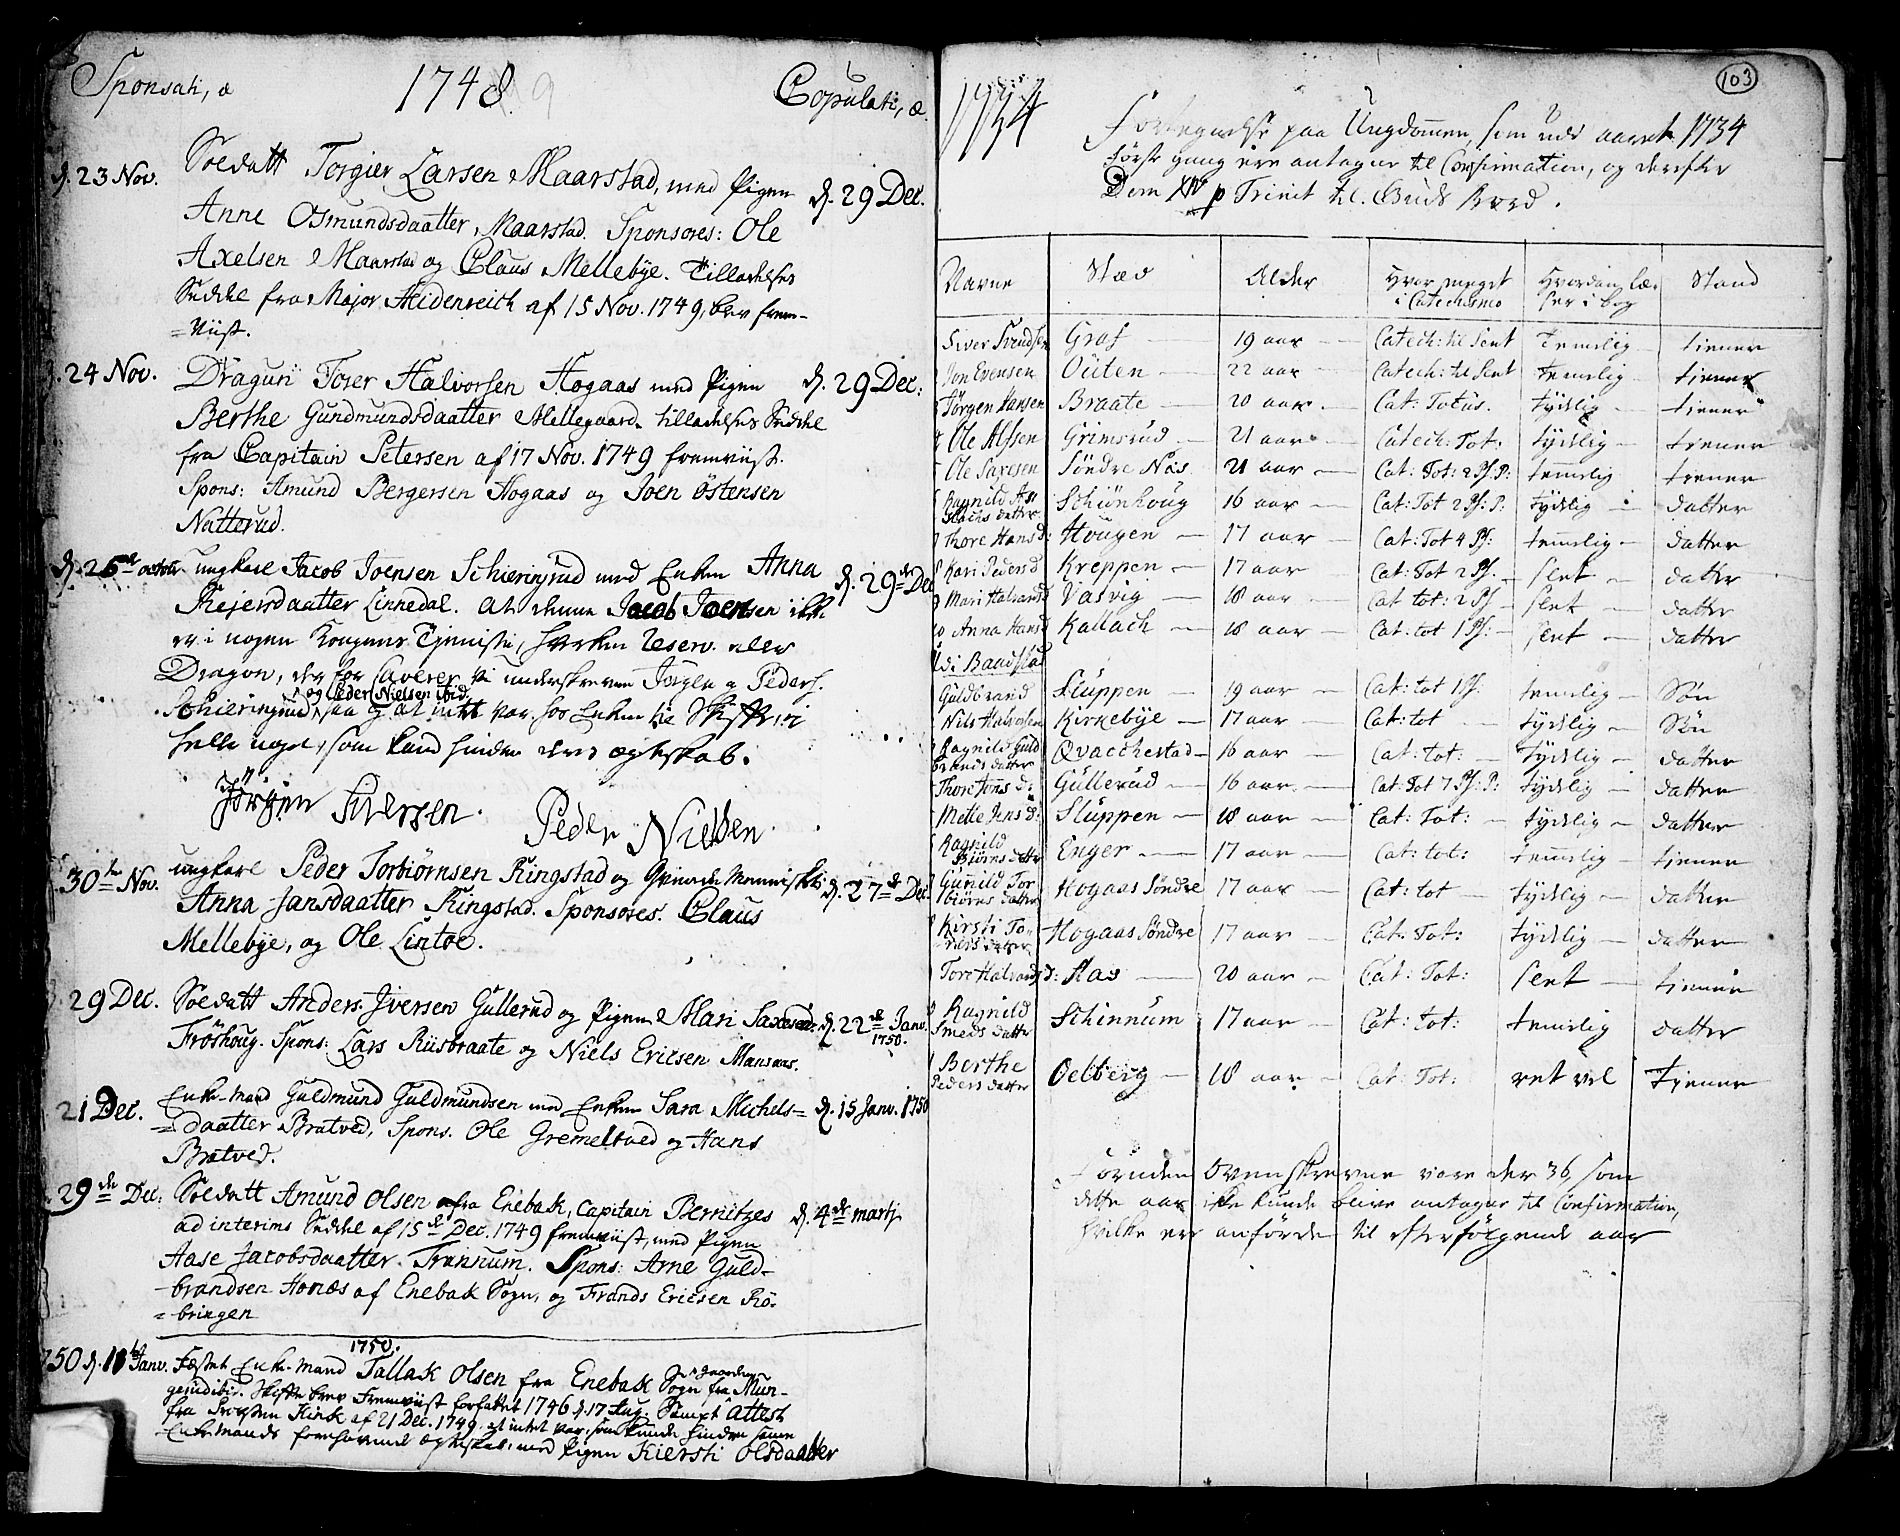 Sponsati, æ 1748. 9 Copulati, æ.
d. 23 Nov. Soldatt Torgier Larsen Maarstad, med Pigen d. 29 Dec.
Anne Osmundsdaatter Maarstad. Sponsores: Ole
Axelsen Maarstad og Claus Mellebye. Tilladelses
Seddel fra Major Heidenreich af 15 Nov. 1749, blev frem-
=viist.
d. 24 Nov. Dragun Toser Halvorsen Hogaas med Pigen d. 29 Dec:
Berthe Gundmundsdaatter Mellegaard. tilladelses Seddel
fra Capitain Petersen af 17 Nov. 1749 fremviist.
Spons: Amund Bergersen Hogaas og Joen Östensen
Natterud.
d. 26 octobr. ungkarl Jacob Joensen Schieringrud med Enken Anna d. 29de Dec
Rejersdaatter Linnedal. at denne Jacob Joensen ikke
er i nogen Kongens Tjeniste, hverken Reserv. eller
Dragon, derfor Caverer vi underskrevne Jörgen og Peders.
og Peder Nielsen ibid.
Schieringrud, saa og at intet var hos Enken til Skifte, ei
heller noget, som kand hindre deres ægteskab.
Jörgen Siversen. Peder Nielsen.
30te Nov. ungkarl Peder Torbiörnsen Ringstad og Qvinde Menniske d. 27de Dec.
Anna Jansdaatter Ringstad. Sponsores. Claus
Mellebye, og Ole Lintoe.
d. 29 Dec. Soldatt Anders Iversen Gullerud og Pigen Mari Saxesd: d. 22de Janv. 1750.
Fröshoug. Spons: Lars Riisbraate og Niels Ericsen Mansaas.
21 Dec. Enke-mand Guldmund Guldmundsen med Enken Sara Michels= d. 15 Janv. 1750
=daatter Bratved, Spons. Ole Gremeltved og Hans
Bratved.
29de Dec: Soldatt Amund Olsen fra Enebak, Capitain Bernitzes d. 4de martj
ad interims Seddel af 15de Dec. 1749 fremviist, med Pigen
Aase Jacobsdaatter Tranum. Spons: Arne Guld-
brandsen Honæs af Enebak Sogn, og Frands Ericsen Rö-
=bringen
1750.
1750 d. 11 Janv. Fæstet Enke-mand Tallak Olsen fra Enebak Sogn fra Mun-
Skifte brev Fremviist forfattet 1746 d. 17 Aug. Attest
fra Torsten Kirk af 21 Dec. 1749, at intet var, som kunde hindre samme
Enkemands forehavende Ægteskab, med Pigen Kiersti Olsdaatter
103
1734 Fortegnelse paa Ungdommen, som udi aaret 1734
förste gang ere antagne til Confirmation, og derefter
Dom XIV p Trinit til Guds Bord.
Navne Stæd Alder Hvor meget i Catechismo Hvordan læser i bog Stand
Siver Svendsen Graf 19 aar Catech: til Sent temelig tiener
Jon Evensen Outen 22 aar Catech: til Sent temelig tiener
Jörgen Hansen Braate 20 aar Cat: Totus. tydelig tiener
Ole Alfsen Grimsrud 21 aar Catech: Tot: tydelig tiener
Ole Saxesen Söndre Nas 21 aar Cat: Tot: 2 Ps: P: temelig tiener
Ragnild Aslachs datter Schiönhoug 16 aar Cat: Tot 2 Ps: P: tydelig datter
Thore Hansd: Hougen 17 aar Cat: Tot 4 Ps: temelig datter
Kari Pedersd Kreppen 17 aar Cat: Tot 2 Ps. slet datter
Mari Halvorsd Vasvig 18 aar Cat: tot: 2 Ps slet datter
10 Anna Hansd Kallach 18 aar Cat: tot 1 Ps: slet datter
di Baadstad
Guldbrand Sluppen 19 aar Cat: tot 1 Ps: temelig Sön
Nils Halvorsen Kirkebye 17 aar Cat: tot tydelig Sön
Ragnild Guldbrands datter Qvacchestad 16 aar Cat: tot: tydelig datter
Thore Jons d: Gullerud 16 aar Cat: Tot 7 Ps: P: tydelig datter
Mette Jens d: Sluppen 18 aar Cat: Tot: tydelig datter
Ragnild Biörns datter Enger 17 aar Cat: tot: temelig tiener
Gunild Torbiörns datter Hogaas Söndre 17 aar Cat: tot tydelig datter
Kirsti Tores datter Hogaas Söndre 17 aar Cat: Tot: tydelig datter
Tore Halvorsd: Aas 20 aar Cat: Tot: slet tiener
Ragnild Smeds datter Schinnum 17 aar Cat: tot: temelig datter
Berthe Peders datter Oelberg 18 aar Cat: Tot: ret vel tiener
Foruden Ovenskrevne vare der 36 som
dette aar ikke kunde blive antagne til Confirmation,
hvilke ere anförde til efterfölgende aar